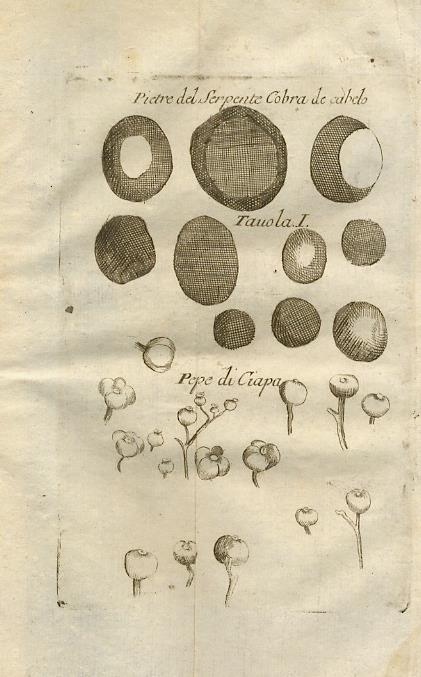 Pietre del Serpente Cobra de cabelo
Tauola.I.
Pepe di Ciapa